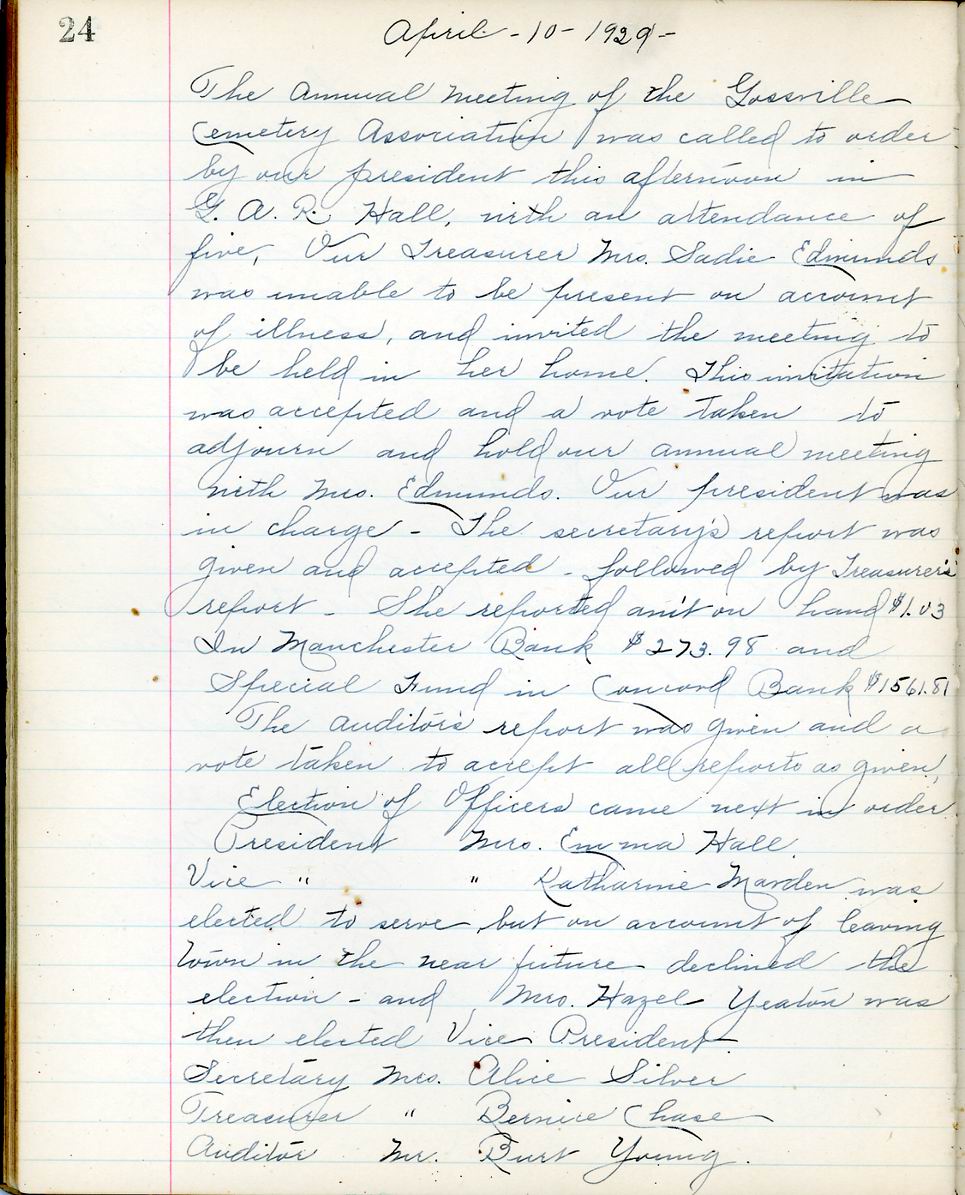 24
April - 10 - 1929 -
The Annual Meeting of the Gossville
Cemetery Association was called to order
by our president this afternoon in
G. A. R. Hall, with an attendance of
five, Our Treasurer Mrs. Sadie Edmunds
was unable to be present on account
of illness, and invited the meeting to
be held in her home. This invitation
was accepted and a vote taken to
adjourn and hold our annual meeting
with Mrs. Edmunds. Our president was
in charge - The secretary's report was
given and accepted - followed by Treasurer's
report - She reported am't on hand $1.03
In Manchester Bank $273.98 and
Special Fund in Concord Bank $1561.81
The Auditor's report was given and a
vote taken to accept all reports as given,
Election of Officers came next in order
President Mrs. Emma Hall.
Vice " " Katharine Marden was
elected to serve but on account of leaving
town in the near future declined the
election - and Mrs. Hazel Yeaton was
then elected Vice President
Secretary Mrs. Alice Silver
Treasurer " Bernice Chase
Auditor Mr. Burt Young.